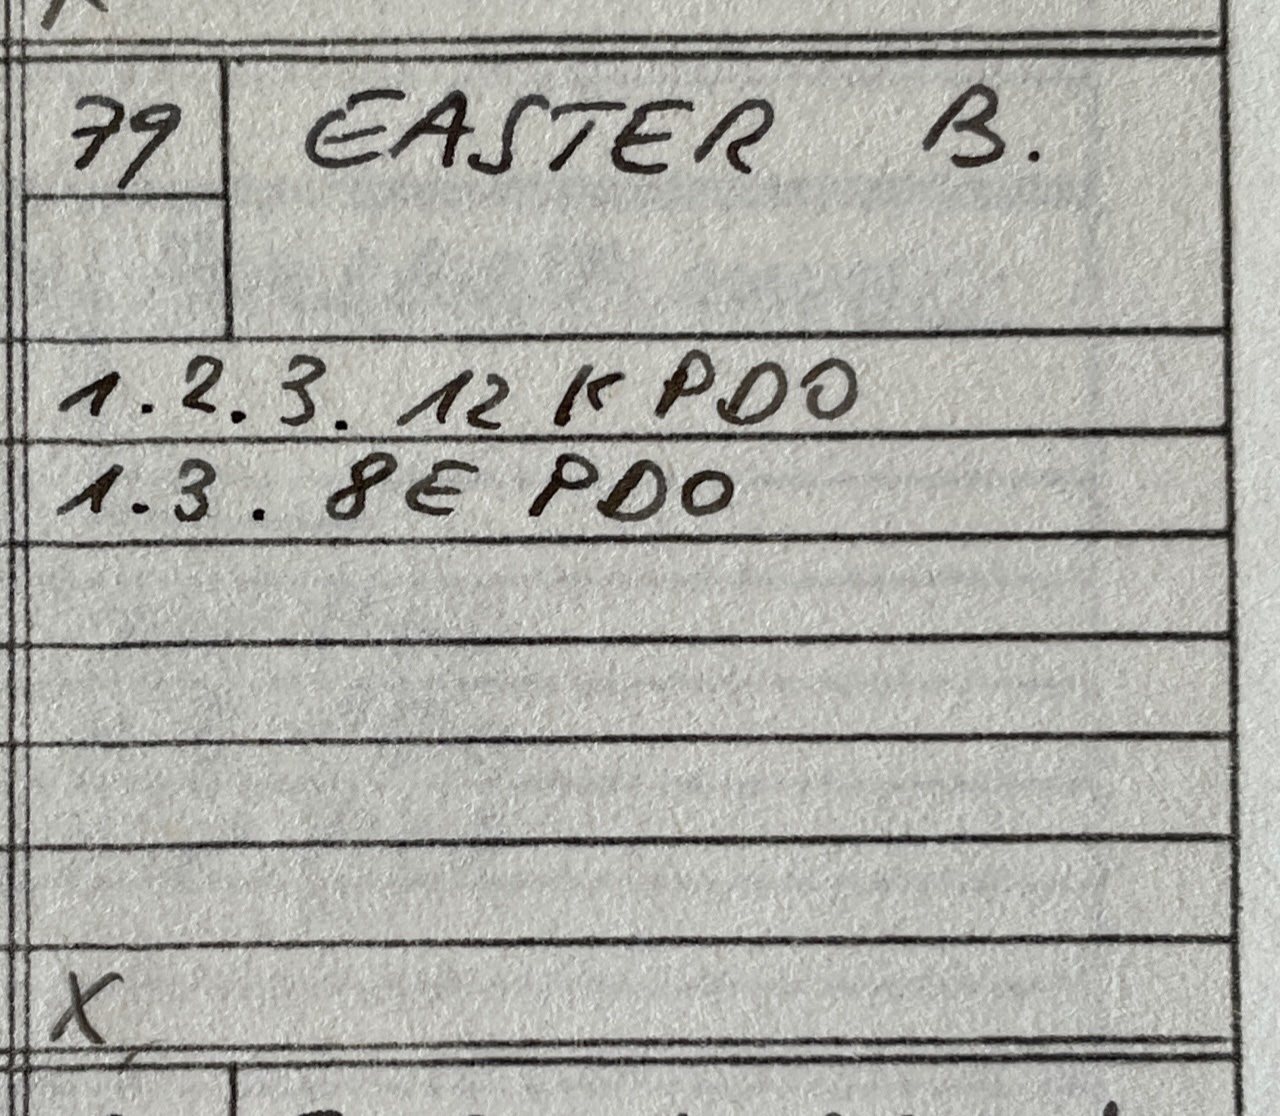 79 EASTER B.
1.2.3. 12 K PDO
1.3. 8E PDO
X